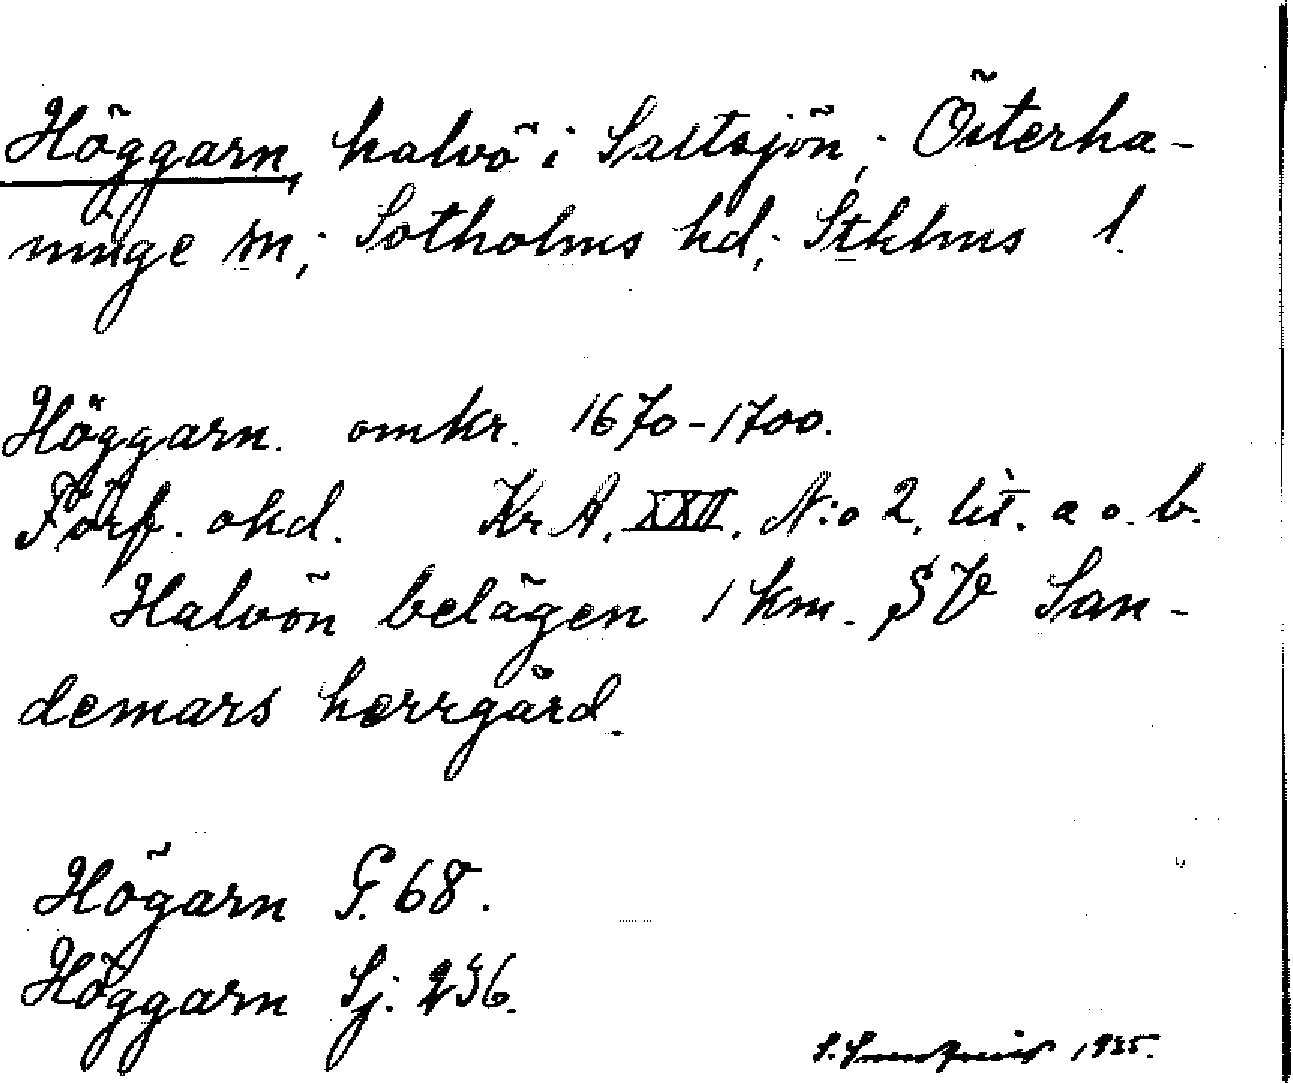 Höggarn, halvö i Saltsjön; Österha-
ninge sn; Sotholms hd; Sthlms l.
Höggarn. omkr. 1670-1700.
Förf. okd. Kr A. XXII. N:o 2. lit. a o. b.
Halvön belägen 1 km. SV San-
demars herrgård.
Högarn G. 68.
Höggarn Sj. 236.
S. 1935.